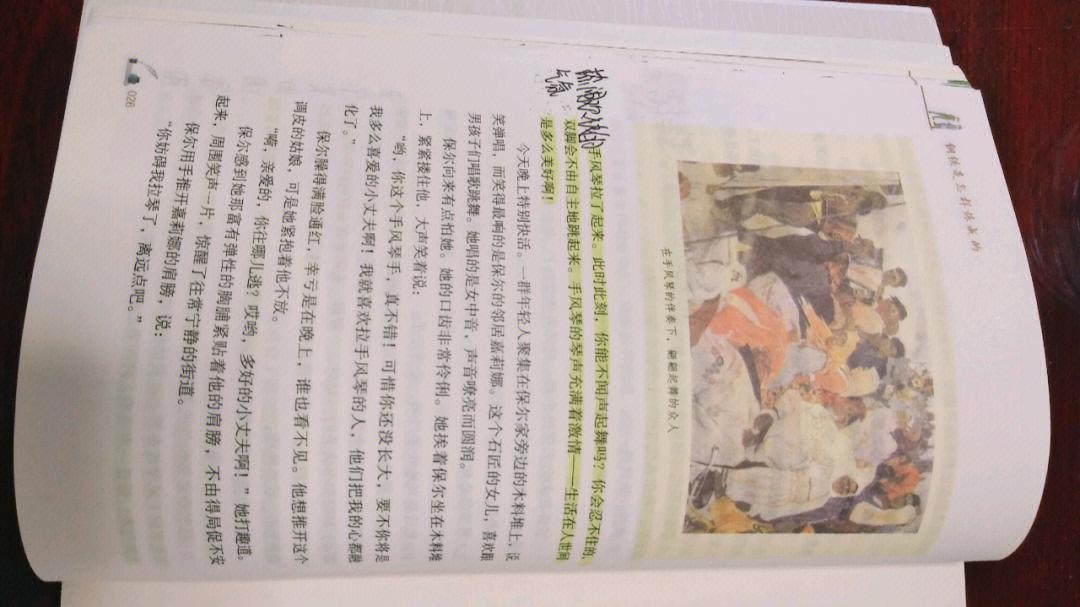 钢铁是怎样炼成的
在手风琴的伴奏下，翩翩起舞的众人
热闹欢快的
气氛
手风琴拉了起来。此时此刻，你能不闻声起舞吗？你会忍不住的，
双脚会不由自主地跳起来。手风琴的琴声充满着激情——生活在人世间
是多么美好啊！
今天晚上特别快活。一群年轻人聚集在保尔家旁边的木料堆上，说
笑弹唱，而笑得最响的是保尔的邻居嘉莉娜。这个石匠的女儿，喜欢跟
男孩子们唱歌跳舞。她唱的是女中音，声音嘹亮而圆润。
保尔向来有点怕她。她的口齿非常伶俐。她挨着保尔坐在木料堆
上，紧紧搂住他，大声笑着说：
“哟，你这个手风琴手，真不错！可惜你还没长大，要不你将是
我多么喜爱的小丈夫啊！我就喜欢拉手风琴的人，他们把我的心都融
化了。”
保尔臊得满脸通红，幸亏是在晚上，谁也看不见。他想推开这个
调皮的姑娘，可是她紧抱着他不放。
“嗬，亲爱的，你往哪儿逃？哎哟，多好的小丈夫啊！”她打趣道。
保尔感到她那富有弹性的胸脯紧贴着他的肩膀，不由得局促不安
起来，周围笑声一片，惊醒了往常宁静的街道。
保尔用手推开嘉莉娜的肩膀，说：
“你妨碍我拉琴了，离远点吧。”
026